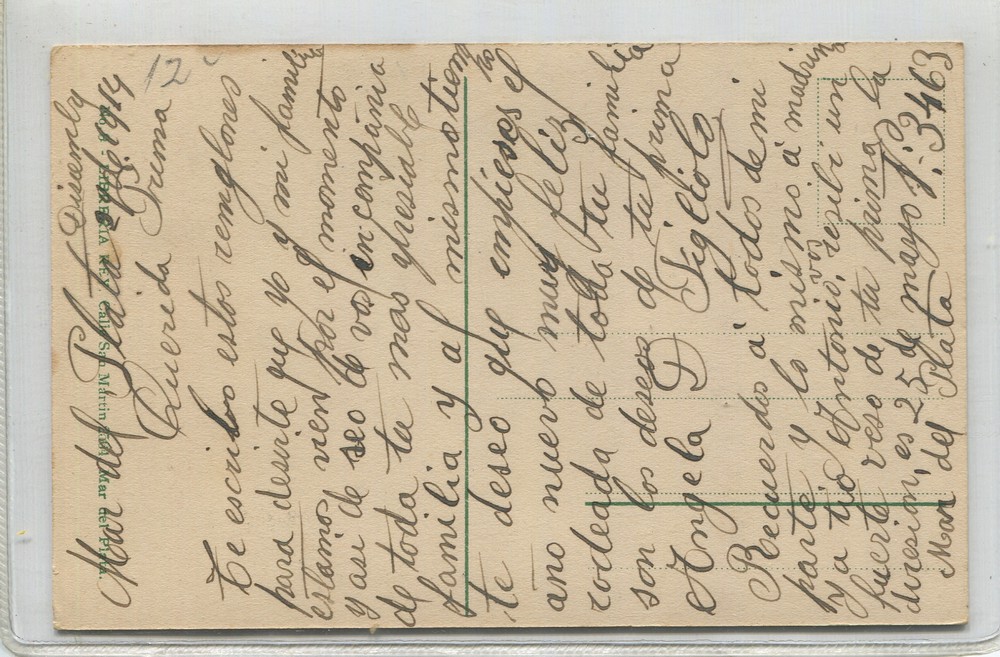 Mar del Plata
1914
12
Querida Prima
Te escribo estos renglones
para desirte que yo y mi familia
estamos vien por el momento
y asi deseo de vos en compania
de toda tu mas
familia y al mismo tiempo
te deseo que empieses el
año nuevo muy feliz y
rodeada de toda tu familia
son los deseos de tu prima
Angela D
Recuerdos a todos de mi
parte y lo mismo á madrina
y a tio Antonio, vos resibi un
fuerte veso de tu prima la
diresion, es 25 de mayo N.º 3463
Mar del Plata
Cale San Martin Mar del Plata